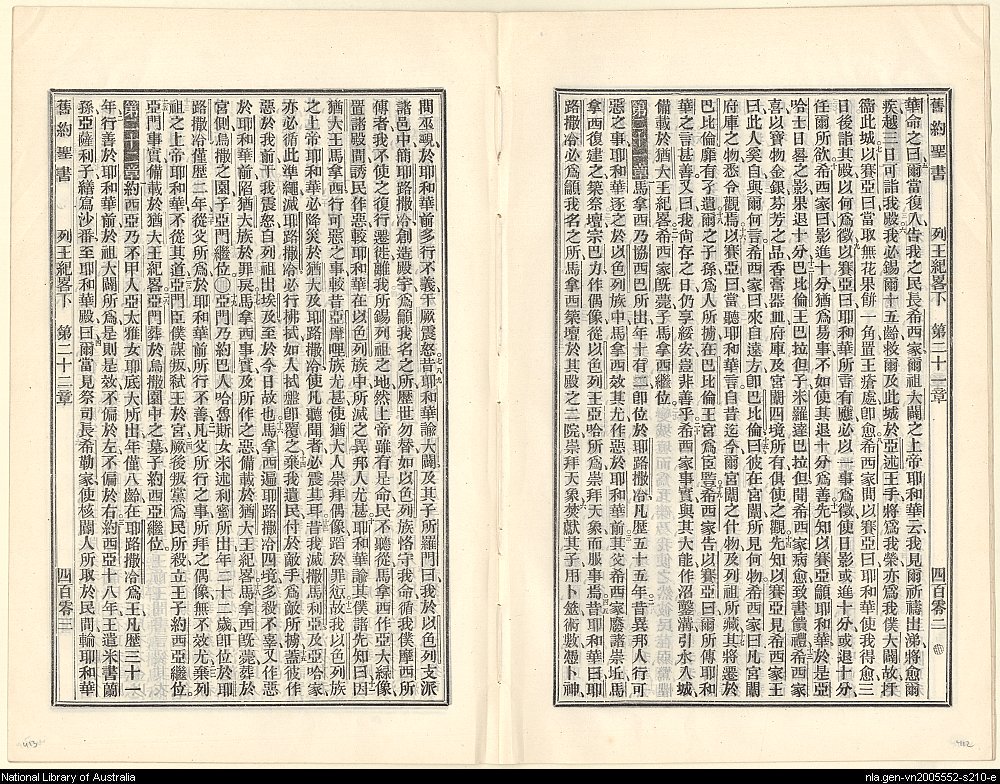 舊約聖書　列王紀畧下　第二十一章　四百零二
華命之曰爾當復入告我之民長希西家爾祖大闢之上帝耶和華云我見爾祈禱出涕將愈爾
疾越三日可詣我殿我必錫爾十五齡救爾及此城於亞述王手將爲我榮亦爲我僕大闢故扞
衞此城以賽亞曰當取無花果餅一角置王瘡處卽愈希西家問以賽亞曰耶和華使我得愈三
日後詣其殿以何爲徵以賽亞曰耶和華所言有應必以一事爲徵使日影或進十分或退十分
任爾所欲希西家曰影進十分猶爲易事不如使其退十分爲善先知以賽亞籲耶和華於是亞
哈士日晷之影果退十分巴比倫王巴拉但子米羅達巴拉但聞希西家病愈致書饋禮希西家
喜以寶物金銀芬芳之品香膏器皿府庫及宮闕四境所有俱使之觀先知以賽亞見希西家王
曰此人奚自與爾何言希西家曰來自遠方卽巴比倫曰彼在宮闕所見何物希西家曰凡宮闕
府庫之物悉令觀焉以賽亞曰當聽耶和華言自昔迄今爾宮闕之什物及列祖所藏其將遷於
巴比倫靡有孑遺爾之子孫爲人所擄在巴比倫王宮爲臣豎希西家告以賽亞曰爾所傳耶和
華之言甚善又曰我尙存之日仍享綏安豈非善乎希西家事實與其大能作沼鑿溝引水入城
備載於猶大王紀畧希西家旣薨子馬拿西繼位
第二十一章馬拿西乃協西巴所出年十有二卽位於耶路撒冷凡歷五十五年昔異邦人行可
惡之事耶和華逐之於以色列族中馬拿西效其尤作惡於耶和華前其父希西家廢諸崇坵馬
拿西復建之築祭壇宗巴力作偶像從以色列王亞哈所爲崇拜天象而服事焉昔耶和華曰耶
路撒冷必爲籲我名之所馬拿西築壇於其殿之二院崇拜天象焚獻其子用卜筮術數憑卜神
間巫覡於耶和華前多行不義干厥震怒昔耶和華諭大闢及其子所羅門曰我於以色列支派
諸邑中簡耶路撒冷創造殿宇爲籲我名之所歷世勿替如以色列族恪守我命循我僕摩西所
傳者我不使之復行遷徙離我所錫列祖之地然上帝雖有是命民不聽從馬拿西作亞大綠像
置諸殿間誘民作惡較耶和華在以色列族中所滅之異邦人尤甚耶和華諭其僕諸先知曰因
猶大王馬拿西行可惡之事較昔亞摩哩族尤甚使猶大人崇拜偶像蹈於罪愆故我以色列族
之上帝耶和華必降災於猶大及耶路撒冷使凡聽聞者必震其耳昔我滅撒馬利亞及亞哈家
亦必循此準繩滅耶路撒冷必行拂拭如人拭盤卽覆之棄我遺民付於敵手爲敵所擄蓋彼作
惡於我前干我震怒自列祖出埃及至於今日故也馬拿西遍耶路撒冷四境多殺不辜又作惡
於耶和華前陷猶大族於罪戾馬拿西事實及所作之惡備載於猶大王紀畧馬拿西旣薨葬於
宮側烏撒之園子亞門繼位亞門乃約巴人哈魯斯女米述利蜜所出年二十二歲卽位於耶
路撒冷僅歷二年從父所爲於耶和華前所行不善凡父所行之事所拜之偶像無不效尤棄列
祖之上帝耶和華不從其道亞門臣僕謀叛弒王於宮厥後叛黨爲民所殺立王子約西亞繼位
亞門事實備載於猶大王紀畧亞門葬於烏撒園中之墓子約西亞繼位
第二十二章約西亞乃不甲人亞大雅女耶底大所出年僅八齡在耶路撒冷爲王凡歷三十一
年行善於耶和華前於祖大闢所爲是則是效不偏於左不偏於右約西亞十八年王遣米書蘭
孫亞薩利子繕寫沙番至耶和華殿曰爾當見祭司長希勒家使核閽人所取於民間輸耶和華
舊約聖書　列王紀畧下　第二十二章　四百零三
413
412
National Library of Australia
nla.gen-vn2005552-s210-e